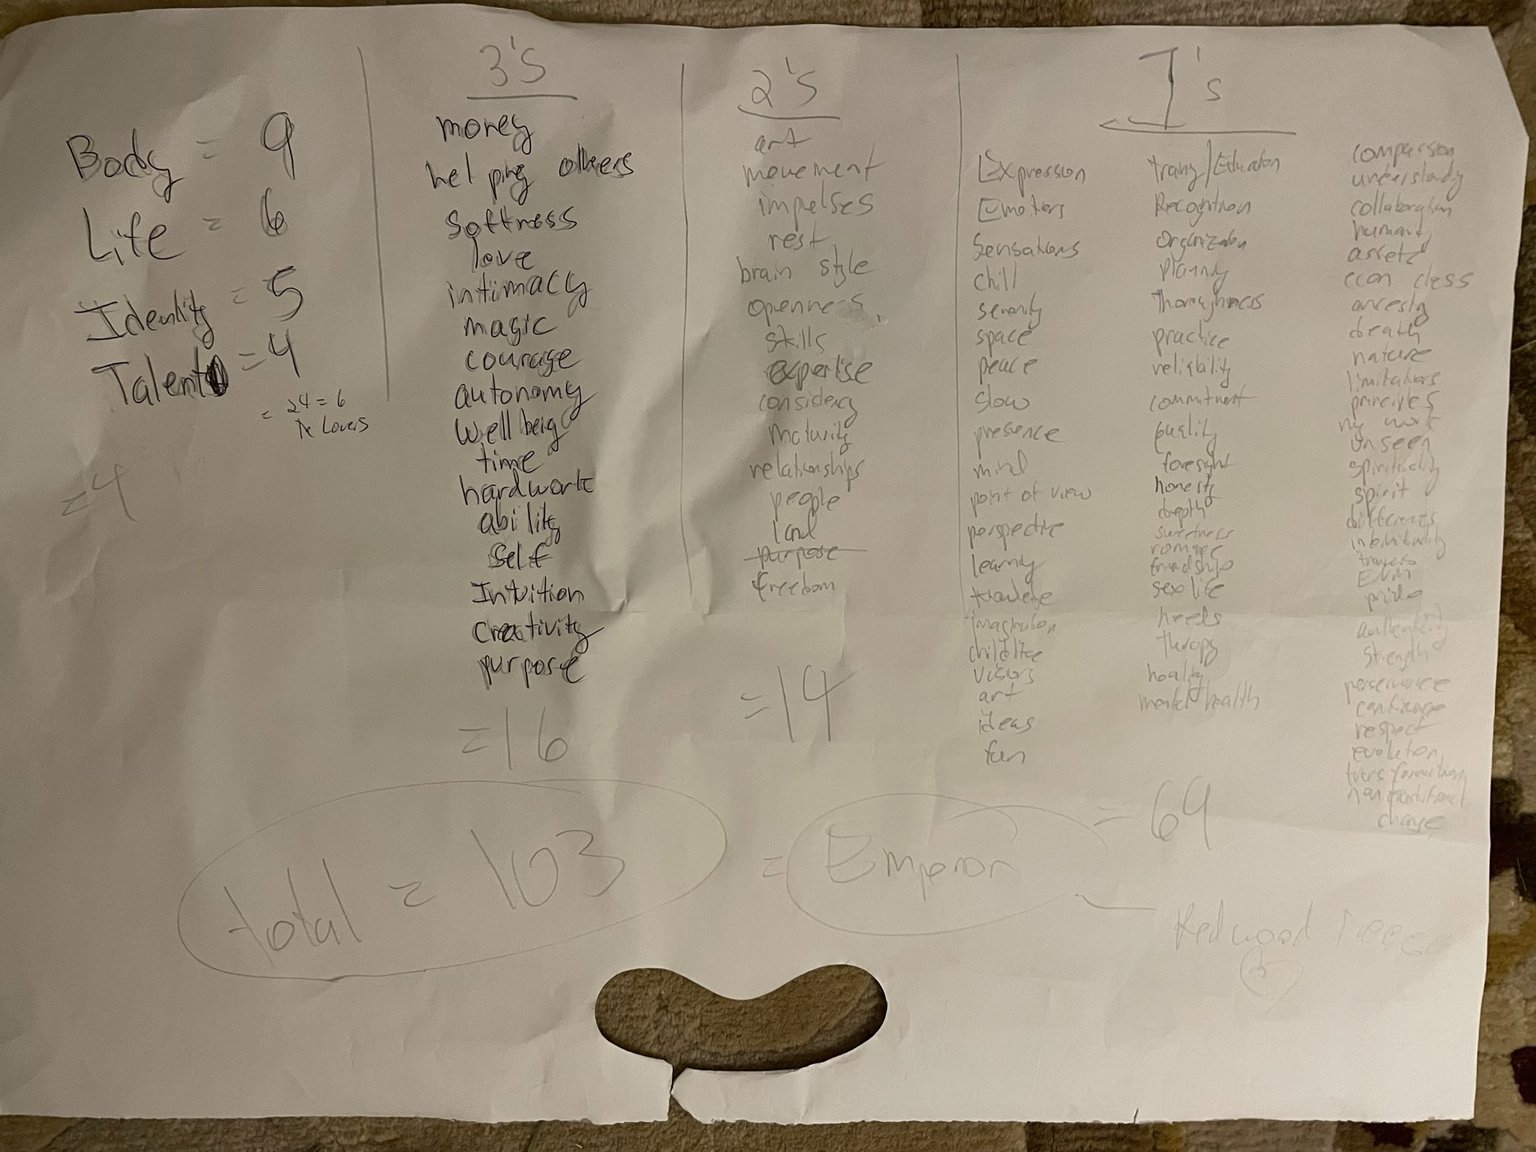 Body = 9
Life = 6
Identity = 5
Talent = 4
= 24 = 6
The Lovers
= 4
3's
money
helping others
softness
love
intimacy
magic
courage
autonomy
well being
time
hardwork
ability
self
Intuition
Creativity
purpose
= 16
2's
art
movement
impulses
rest
brain style
openness
skills
expertise
maturity
relationships
people
land
purpose
freedom
= 14
1's
Expression
Emotions
Sensations
chill
serenity
space
peace
slow
presence
mind
point of view
perspective
learning
knowledge
imagination
childlike
visions
art
ideas
fun
Recognition
organization
planning
thoroughness
practice
reliability
commitment
quality
foresight
honesty
depth
sweetness
romance
friendships
sex life
needs
therapy
healing
mental health
compassion
understandg
collaboration
humanity
assets
econ class
ancestry
death
nature
limitations
principles
my work
unseen
spirituality
spirit
individuality
pride
authenticity
Strength
perseverance
confidence
respect
evolution
transformation
change
= 64
total = 103
= Emperor
Redwood Trees